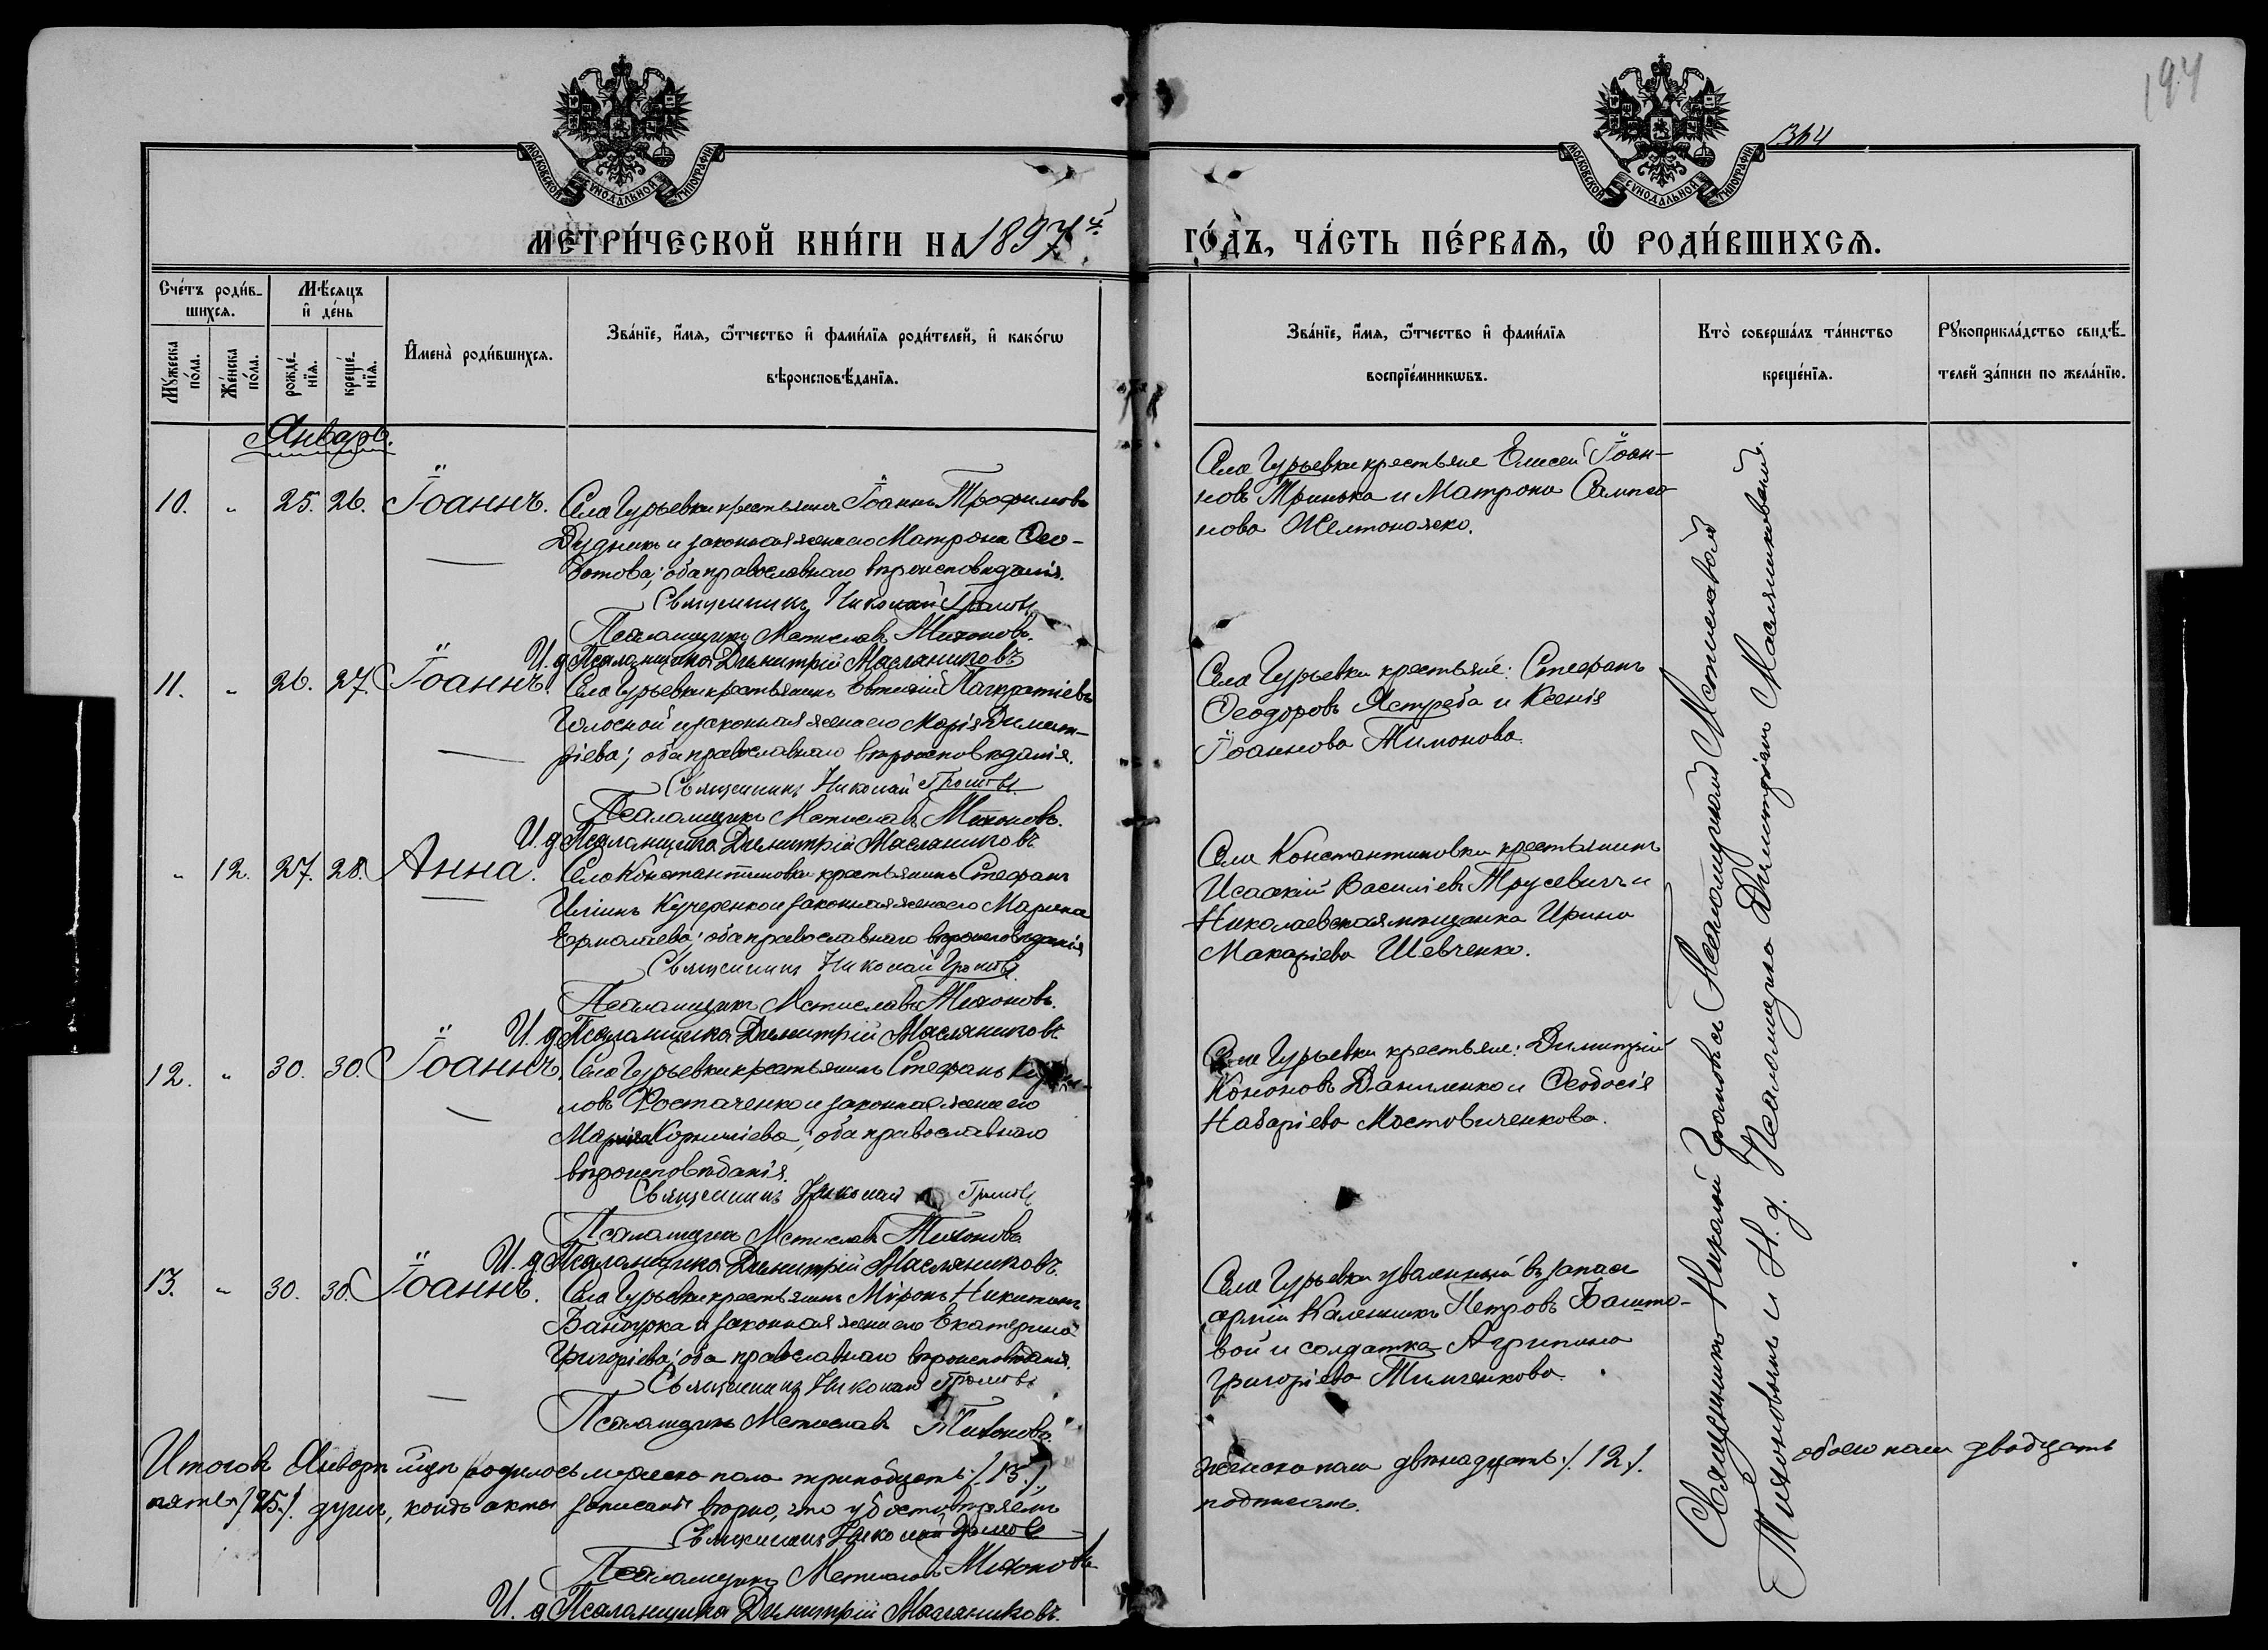 194
1364
МОСКОВСКОЙ СУНОДАЛЬНОЙ ТИПОГРАФІИ
МОСКОВСКОЙ СУНОДАЛЬНОЙ ТИПОГРАФІИ
МЕТРИ́ЧЕСКОЙ КНИ́ГИ НА 1897й
ГО́ДЪ, ЧА́СТЬ ПЕ́РВАѦ, Ѡ҆ РОДИ́ВШИХСѦ.
Сче́тъ роди́в-
шихсѧ.
Мѣ́сѧцъ
и҆ де́нь
Мꙋ́жеска по́ла.
Же́нска по́ла.
рожде́-
нїѧ.
креще́-
нїѧ.
И҆мена̀ роди́вшихсѧ.
Зва́нїе, и҆́мѧ, ѻ҆́тчество и҆ фами́лїѧ роди́телей, и҆ како́гѡ
вѣроисповѣ́данїѧ.
Зва́нїе, и҆́мѧ, ѻ҆́тчество и҆ фами́лїѧ
воспрїе́мникѡвъ.
Кто̀ соверша́лъ та́инство
креще́нїѧ.
Рꙋкоприкла́дство свидѣ́-
телей за́писи по жела́нїю.
Январь.
10. „ 25. 26. Іоаннъ. Села Гурьевки крестьянинъ Іоаннъ Трофимовъ
Дудникъ и законная жена его Матрона Ѳео-
доtова; оба православнаго вѣроисповѣданія.
Священникъ Николай Громовъ
Псаломщикъ Мстиславъ Тихоновъ.
И. д. Псаломщика Димитрій Масляниковъ
Села Гурьевки крестьяне Елисей Іоан-
новъ Тринька и Матрона Сампсо-
нова Желтоножко.
11. „ 26. 27. Іоаннъ. Села Гурьевки крестьянинъ Евтихій Панкратіевъ
Голосной и законная жена его Марія Димит-
ріева; оба православнаго вѣроисповѣданія.
Священникъ Николай Громовъ
Псаломщикъ Мстиславъ Тихоновъ.
И. д. Псаломщика Димитрій Масляниковъ
Села Гурьевки крестьяне: Стефанъ
Ѳеодоровъ Ястреба и Ксенія
Іоаннова Тимонова.
„ 12. 27. 28. Анна. Села Константиновки крестьянинъ Стефанъ
Иліинъ Кучеренко и законная жена его Марина
Ермолаева; оба православнаго вѣроисповѣданія
Священникъ Николай Громовъ
Псаломщикъ Мстиславъ Тихоновъ.
И. д. Псаломщика Димитрій Масляниковъ
Села Константиновки крестьянинъ
Исаакій Василіевъ Трусевичъ и
Николаевская мѣщанка Ирина
Макаріева Шевченко.
12. „ 30. 30. Іоаннъ. Села Гурьевки крестьянинъ Стефанъ
ловъ Ростаченко и законная жена его
Марія Корниліева; оба православнаго
вѣроисповѣданія.
Священникъ Николай Громовъ
Псаломщикъ Мстиславъ Тихоновъ
И. д. Псаломщика Димитрій Масляниковъ.
Села Гурьевки крестьяне: Димитрій
Кононовъ Даниленко и Ѳеодосія
Назаріева Мостовиченкова.
13. „ 30. 30. Іоаннъ. Села Гурьевки крестьянинъ Міронъ Никитинъ
Бандурка и законная жена его Екатерина
Григоріева; оба православнаго вѣроисповѣданія.
Священникъ Николай Громовъ
Псаломщикъ Мстиславъ Тихоновъ.
Села Гурьевки уволенный въ запасъ
арміи Каленикъ Петровъ Башто-
вой и солдатка Агрипина
Григоріева Тимченкова.
Священникъ Николай Громовъ съ Псаломщикомъ Мстиславомъ
Тихоновымъ и И. д. Псаломщика Димитріемъ Масляниковымъ.
Итого въ Январѣ мцѣ родилось мужеска пола тринадцать /.13./, женска пола двѣнадцать /.12/. обоего пола двадцать
пять /.25./. душъ, коихъ акты записаны вѣрно, что удостовѣряемъ подписомъ.
Священникъ Николай Громовъ
Псаломщикъ Мстиславъ Тихоновъ
И. д. Псаломщика Димитрій Масляниковъ.